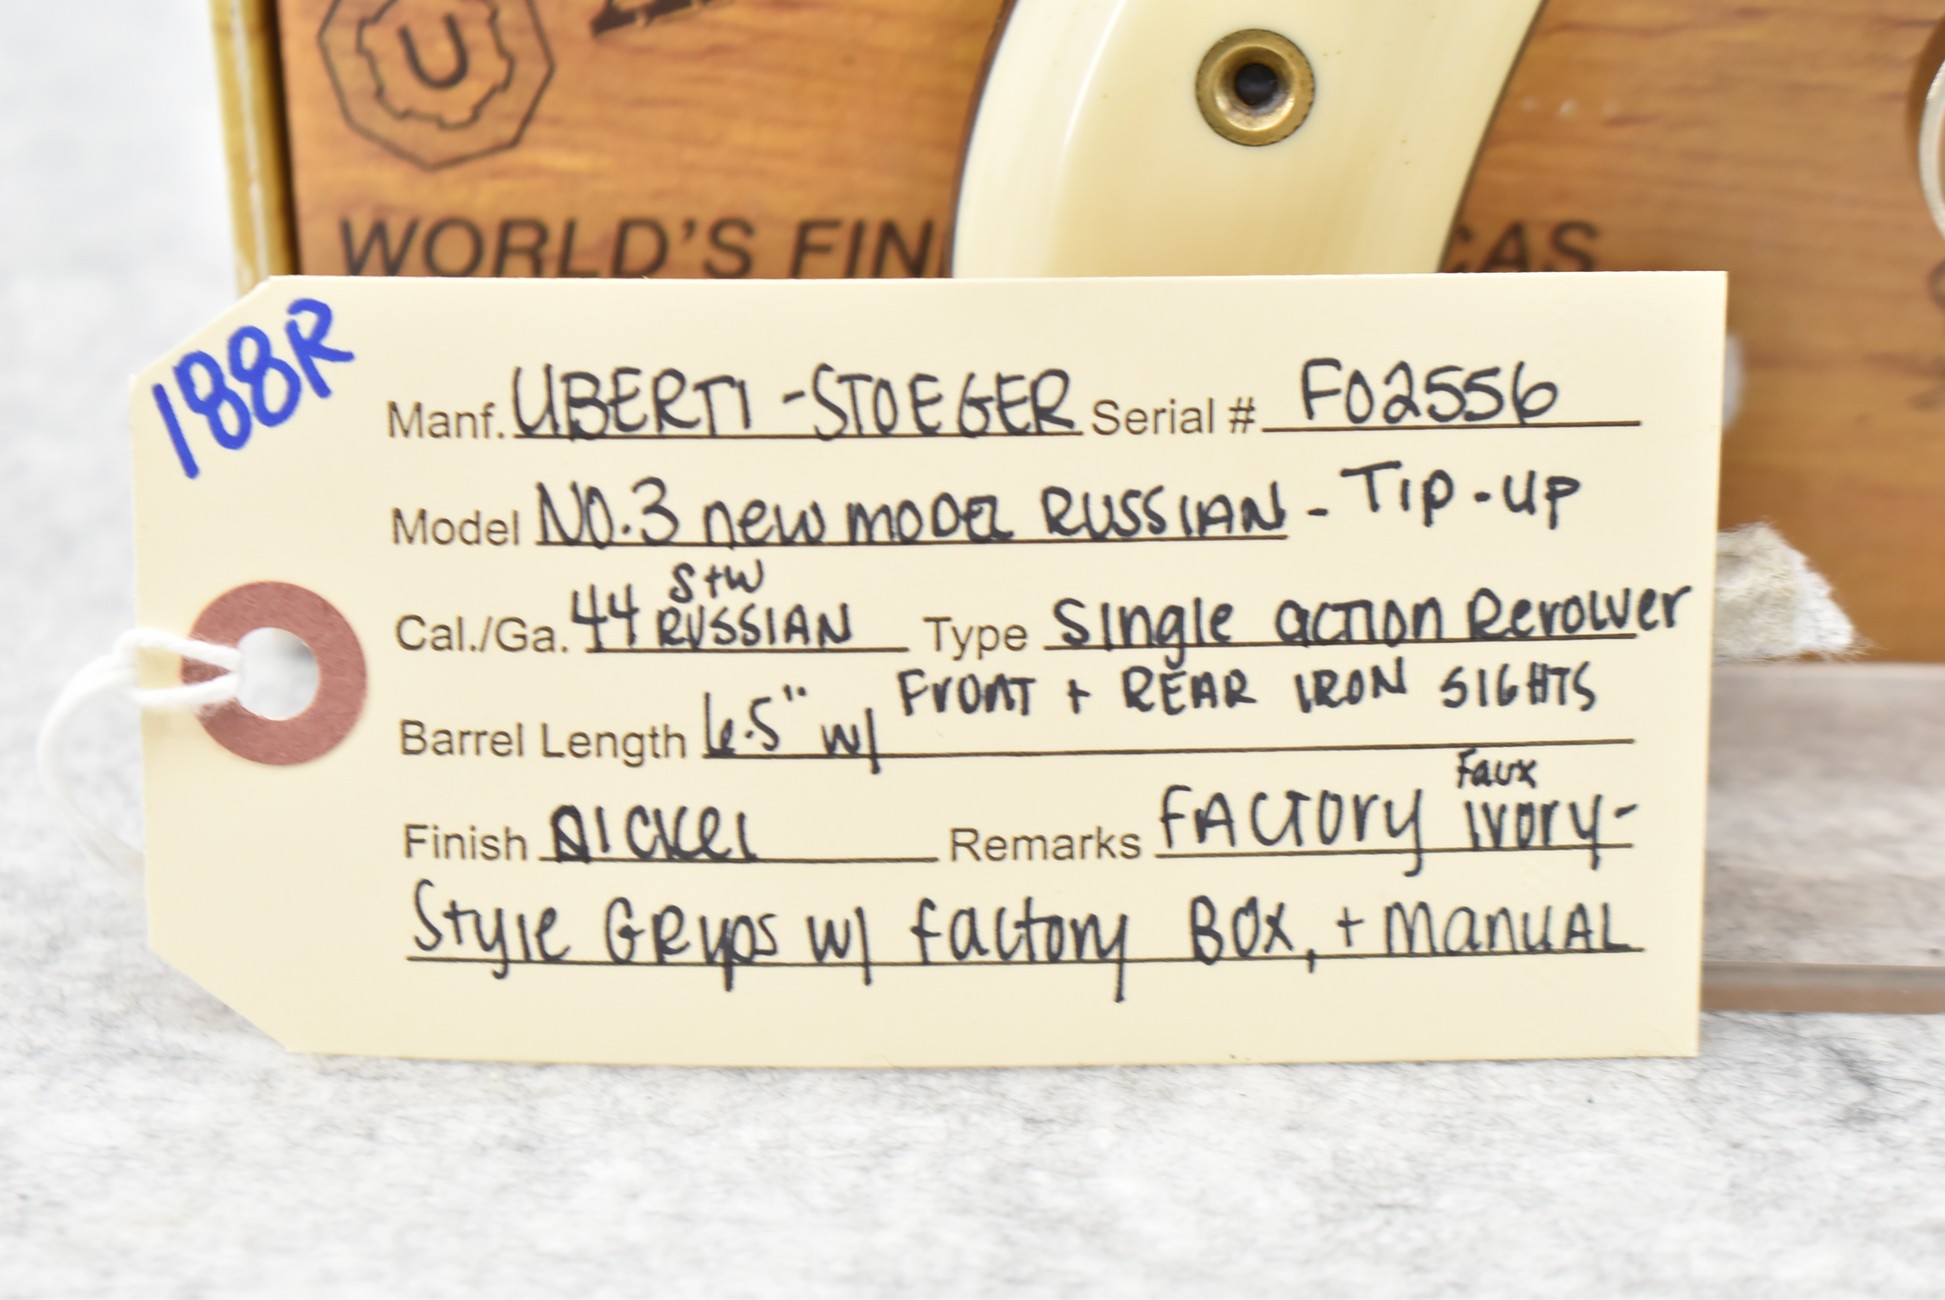 U
WORLD'S FIN CAS
188R
Manf. UBERTI - STOEGER Serial # F02556
Model NO.3 new MODEL RUSSIAN - TIP-UP
Cal./Ga. 44 S+W RUSSIAN Type Single ACTION Revolver
Barrel Length 6.5" w/ FRONT + REAR IRON SIGHTS
Finish NICKEL Remarks FACTORY Faux IVORY-
Style GRips w/ factory BOX, + MANUAL